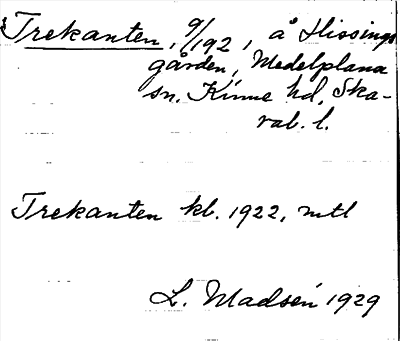 Trekanten, 9/192, å Hissings
gården, Medelplana
sn. Kinne hd, Ska-
rab. l.
Trekanten kb. 1922, mtl
L. Madsén 1929